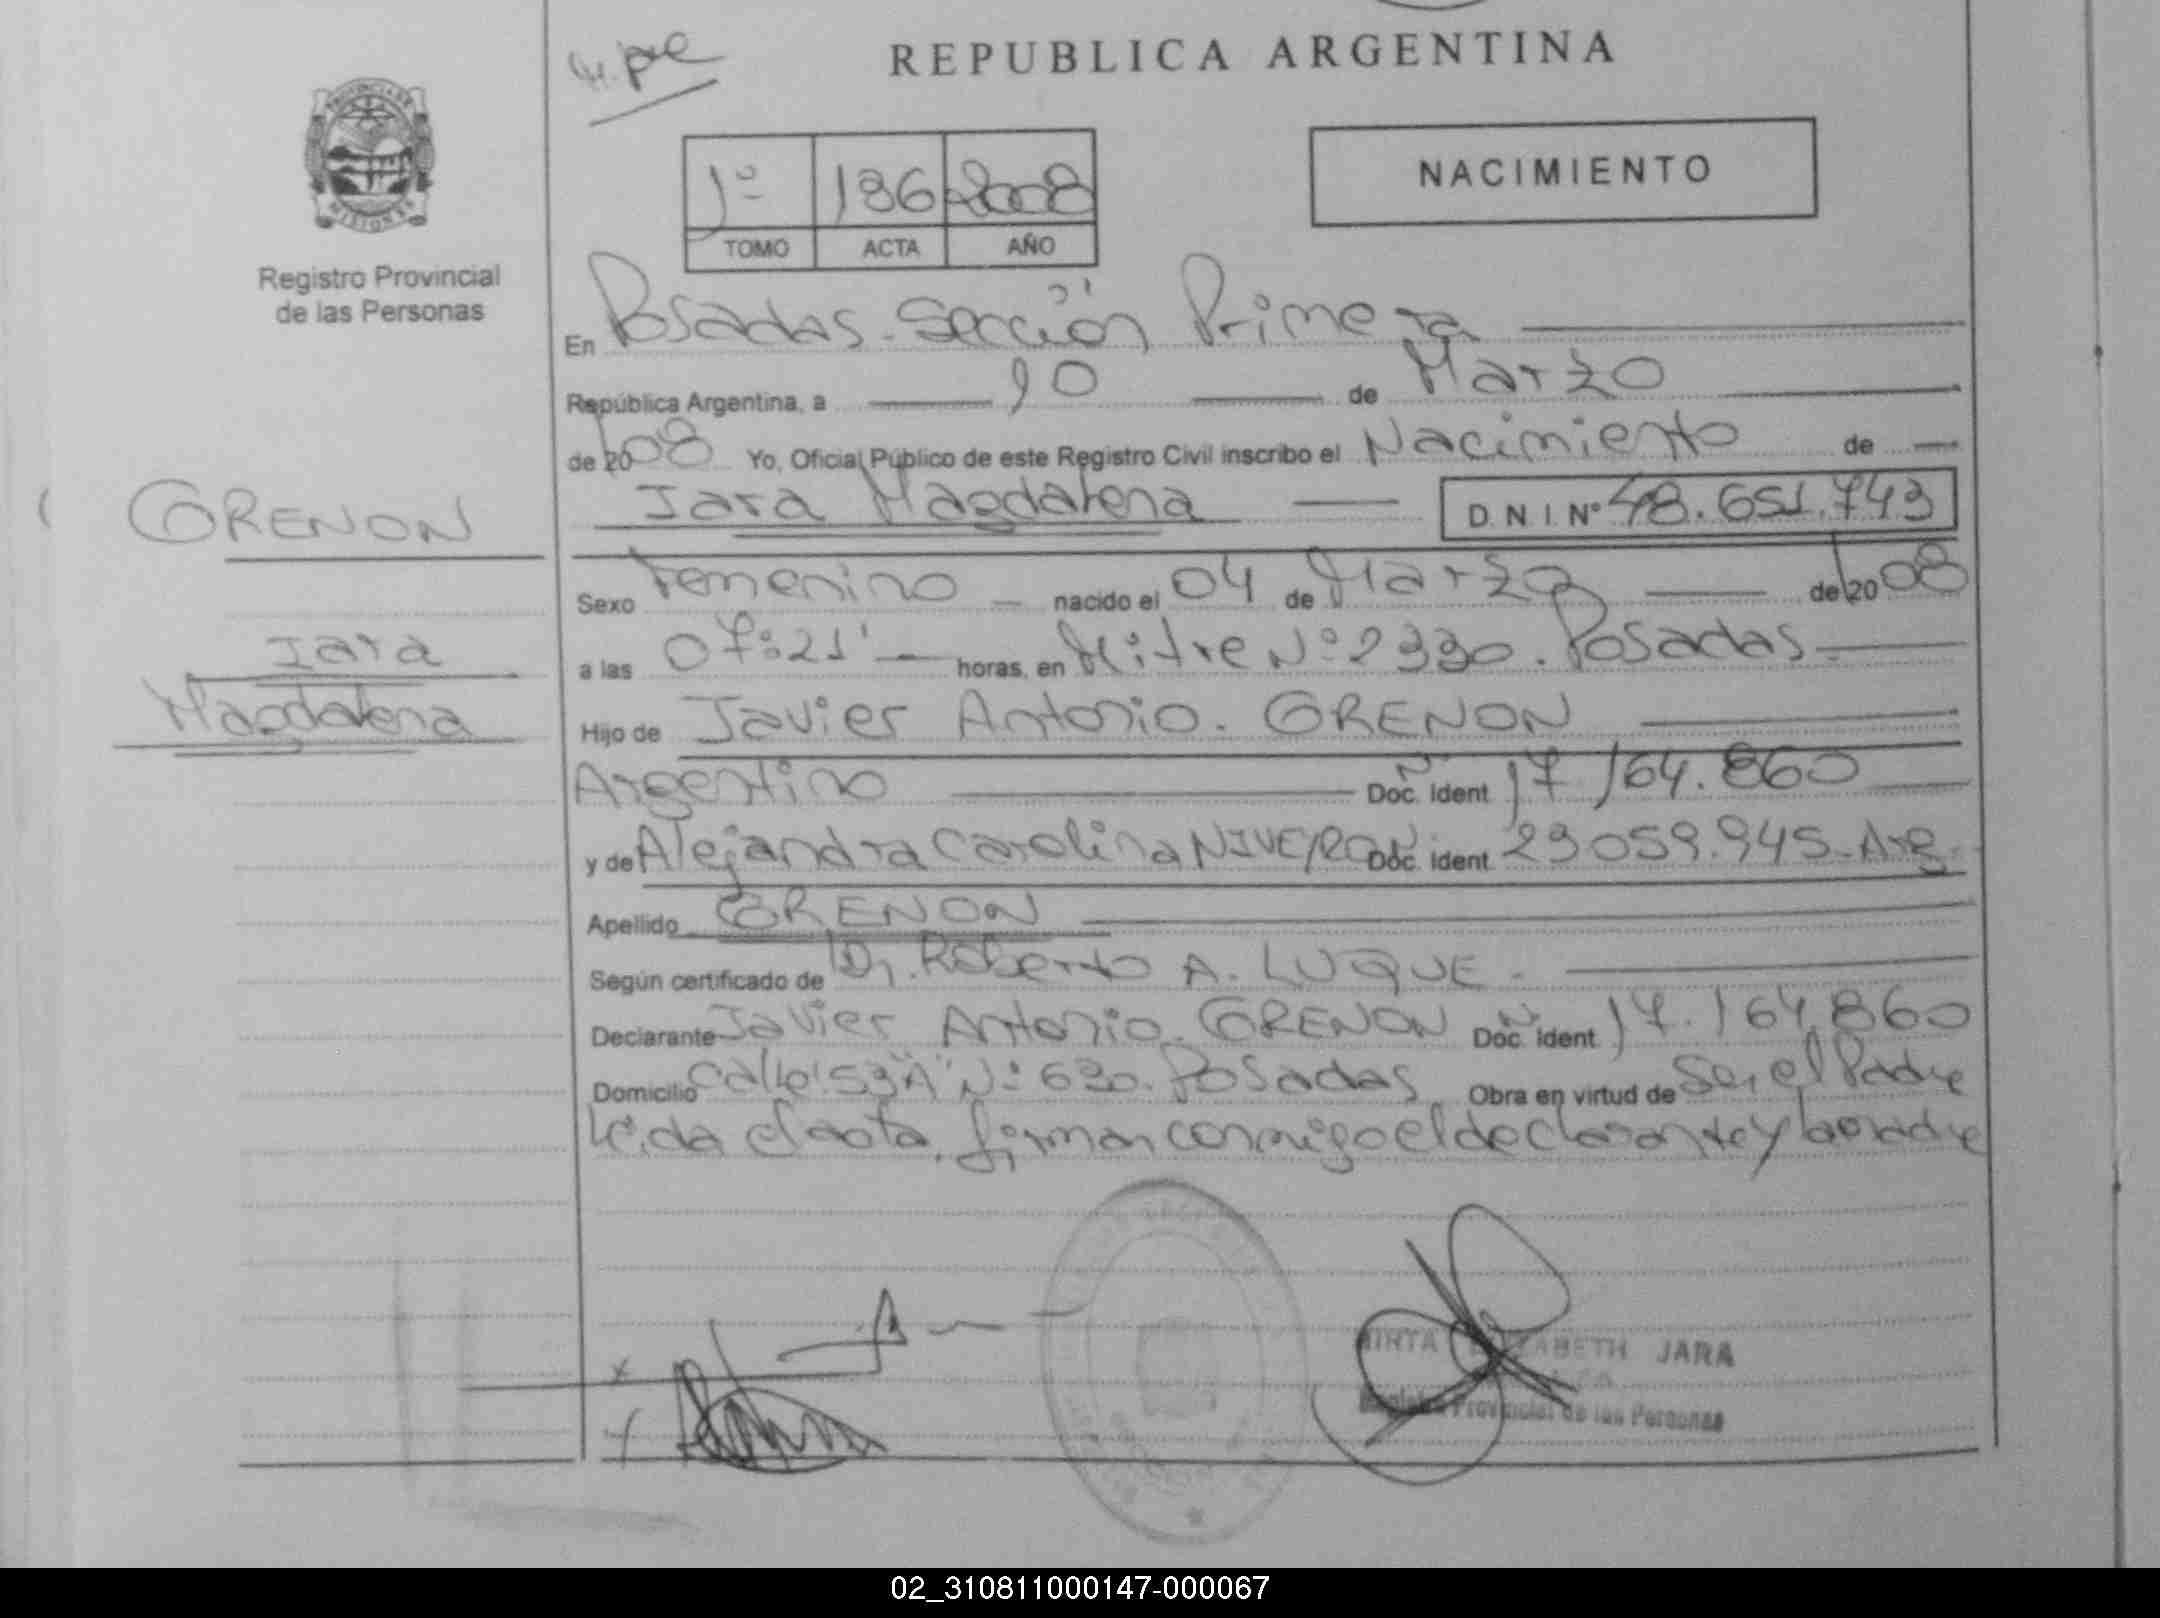 REPUBLICA ARGENTINA
PROVINCIA DE
MISIONES
Registro Provincial
de las Personas
1º 186 2008
TOMO ACTA AÑO
NACIMIENTO
En Posadas - Sección Primera
República Argentina, a 10 de Marzo
de 2008 Yo, Oficial Público de este Registro Civil inscribo el Nacimiento de
Iara Magdalena D.N.I. Nº 48.651.743
GRENON
Iara
Magdalena
Sexo Femenino nacido el 04 de Marzo de 2008
a las 07:21' horas, en Mitre Nº 2330. Posadas.
Hijo de Javier Antonio. GRENON
Argentino Doc. Ident. 17 164.860
y de Alejandra Carolina NIVEYRO Doc. Ident. 29 059.945 - Arg.
Apellido GRENON
Según certificado de Dr. Roberto A. LUQUE.
Declarante Javier Antonio. GRENON Doc. Ident. 17.164.860
Domicilio Calle "53 A" Nº 630. Posadas Obra en virtud de Ser el Padre
Leída el acta, firman conmigo el declarante y la madre
MIRTA ELIZABETH JARA
Registro Provincial de las Personas
02_310811000147-000067